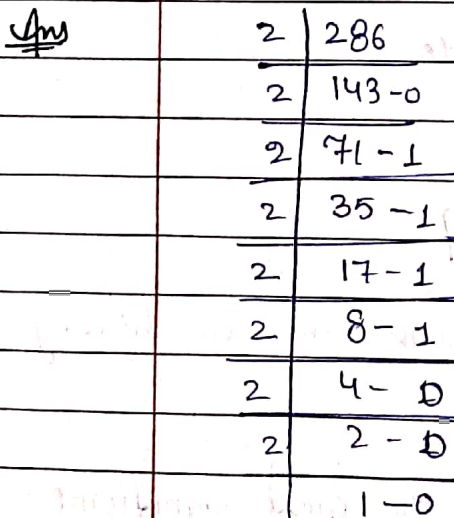 Ans 2 | 286
2 | 143-0
2 | 71-1
2 | 35-1
2 | 17-1
2 | 8-1
2 | 4-0
2 | 2-0
1-0